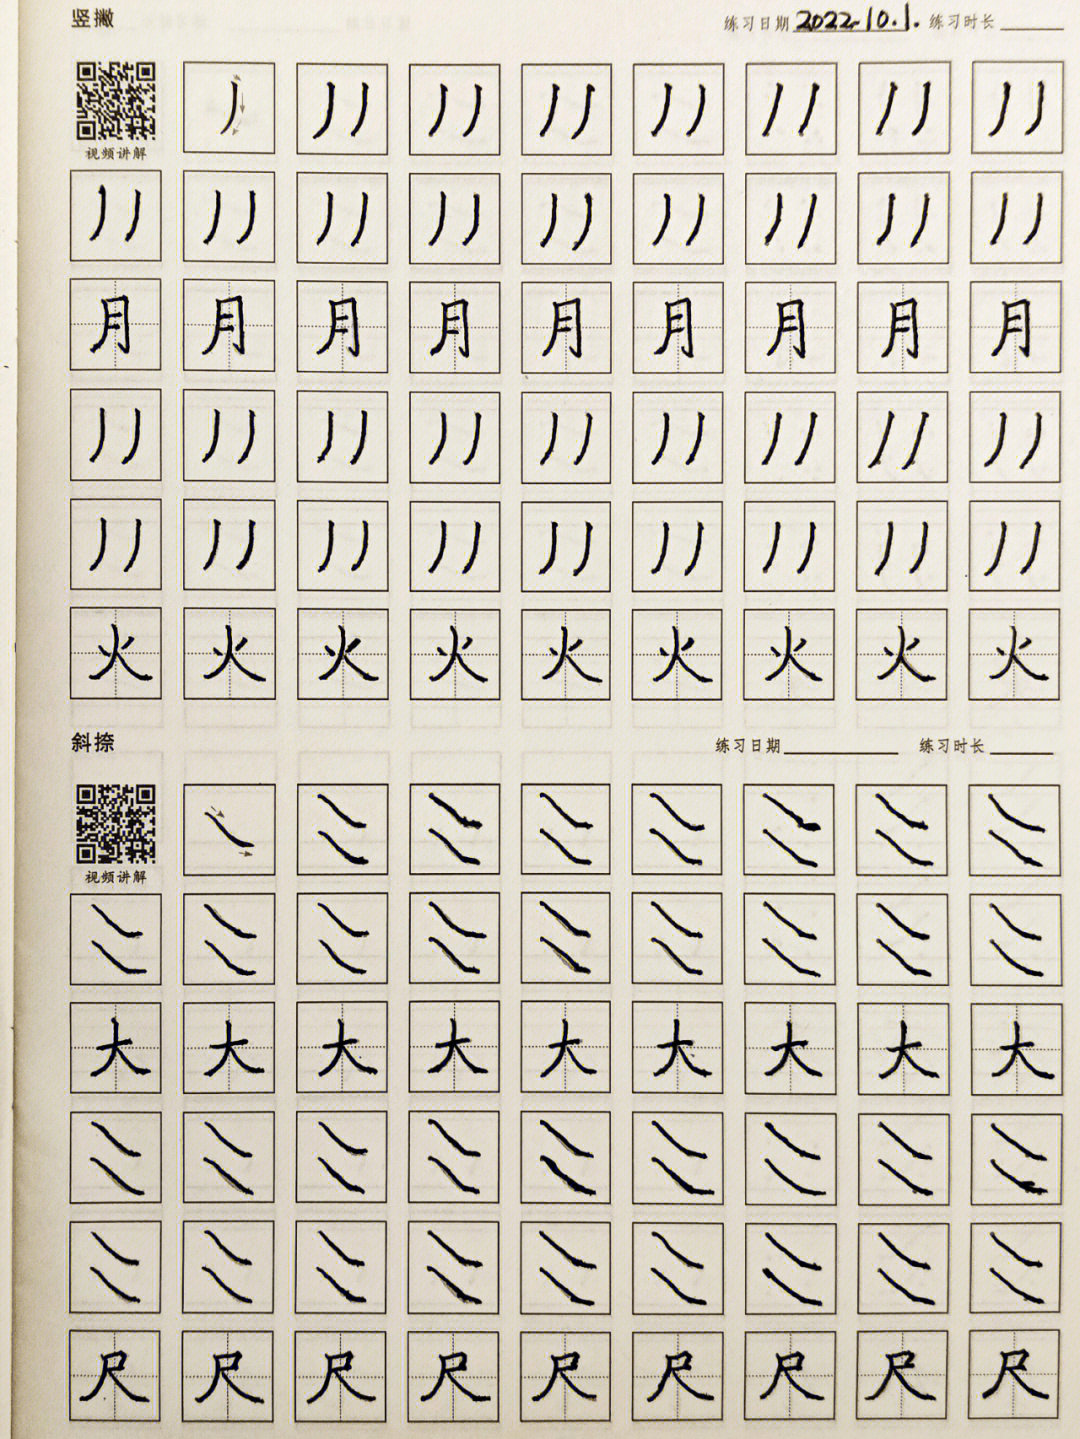 竖撇 练习日期 2022.10.1. 练习时长
视频讲解
月 月 月 月 月 月 月 月 月
火 火 火 火 火 火 火 火 火
斜捺 练习日期 练习时长
视频讲解
大 大 大 大 大 大 大 大 大
尺 尺 尺 尺 尺 尺 尺 尺 尺